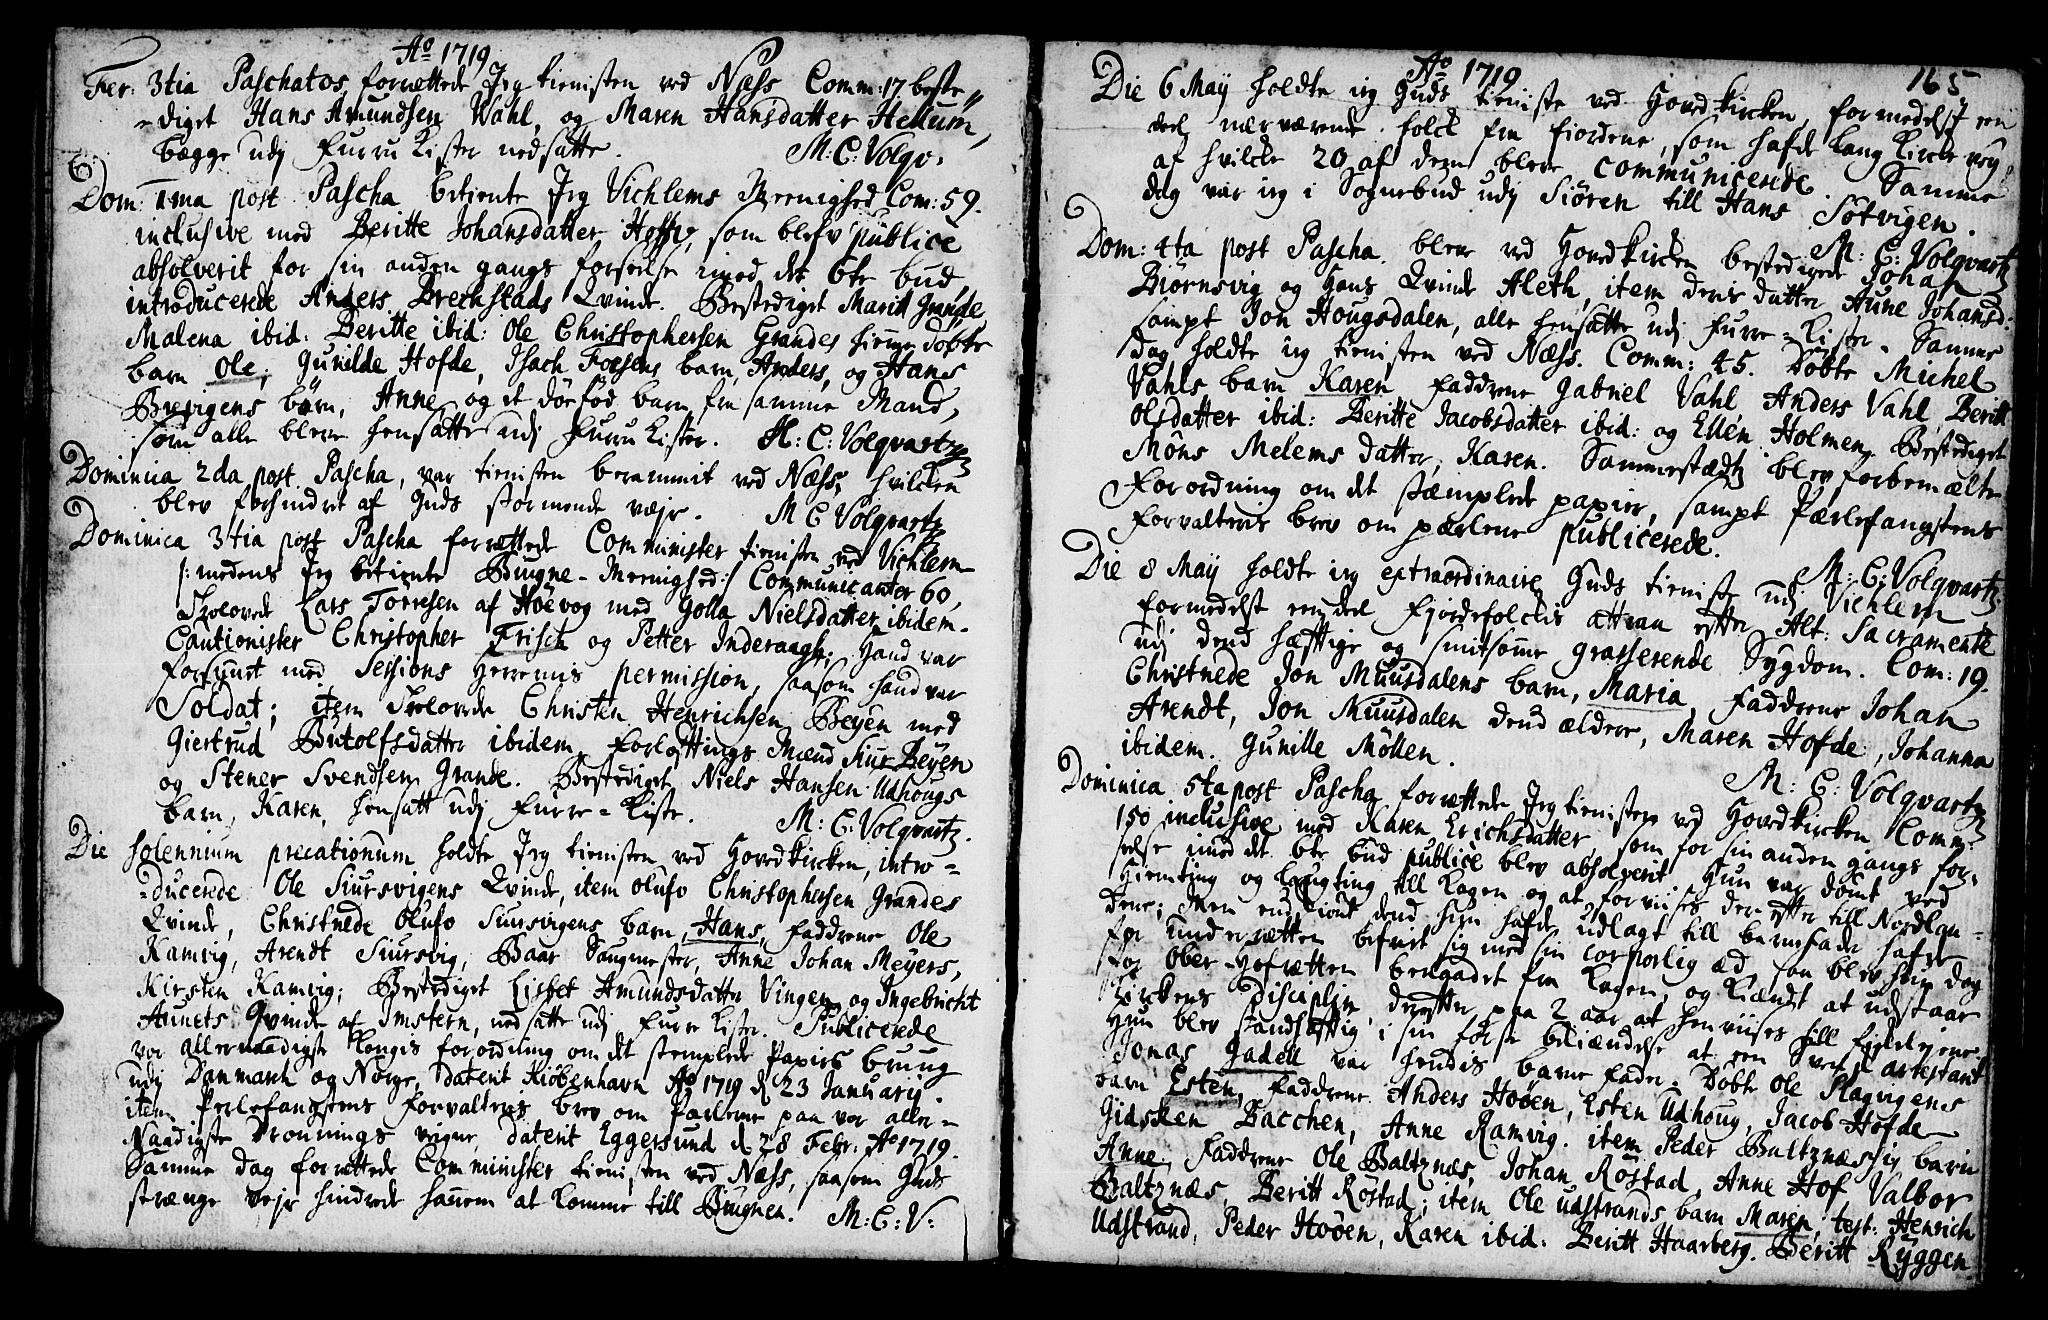 Ao 1719
Fer: 3tia Paschatos, forrettede Jeg tienisten ved Næss Comm: 17 beste
-diget Hans Amundsen Wahl, og Maren Hansdatter Hellum,
begge udj furru Kister nedsatte. M: C: Volqv.
Dom: 1ma post Pascha betiente Jeg Vichlems Meenighed Com: 59.
inclusive med Beritte Johansdatter Hofde, som blefv publice
absolverit for sin anden gangs forseelse imod det 6te bud,
introducerede Anders Breckstads Qvinde. Bestediget Marit Grande
Malena ibid: Beritte ibid: Ole Christophersen Grandes hiemme døbte
barn Ole; Gunilde Hofde, Isach Foesens barn, Anders, og Hans
Brevigens børn, Anne, og et dødfød barn fra samme Mand,
som alle bleve hensatte udj furru Kister. M: C: Volqvartz
Dominica 2da post Pascha, var tienisten berammit ved Næss, hvilcken
blev forhindret af Guds stormende vejr. M C Volqvartz
Dominica 3tia post Pascha forrettede Comminister tienisten ved Vichlem
/: medens Jeg betiente Biugne-Meenighed :/ Communicanter 60,
Trolovede Lars Torresen af Høevog med Golla Nielsdatter ibidem.
Cautionister Christopher Frisch og Petter Inderaagh: Hand var
forsynt med Sessions Herrernis permission, saasom hand var
Soldat; item Trolovede Christen Henrichsen Beyen med
Giertrud Butolfsdatter ibidem, forlofftings Mænd Siur Beyen
og Stener Svendsen Grande. Bestediget Niels Hansen Udhougs
barn, Karen, hensatt udj furre-Kiste. M: C: Volqvartz.
Die solennium precationum holdte Jeg tienisten ved Hovedkircken, intro-
-ducerede Ole Siursvigens Qvinde, item Olufo Christophersen Grandes
Qvinde, Christnede Olufo Siursvigens barn, Hans, faddrene Ole
Ramvig, Arendt Siursvig, Baar Saugmester, Anne Johan Meyers,
Kirsten Ramvig; Bestediget Lisbet Amundsdatter Vingen og Ingebricht
Aunets Qvinde af Imstern, nedsatte udj furre Kister. Publicerede
vor allernaadigste Kongis forordning om det stemplede Papirs brug
udj Danmarck og Norge, daterit Kiøbenhavn Ao 1719 d 23 Januarij.
item Perlefangstens forvalteres brev om Parlerne paa vor aller-
Naadigste Dronnings vegne, daterit Eggersund d 28 Febr: Ao 1719.
Samme dag forrettede Comminister tienisten ved Næss, saasom Guds
strænge vejr hindrede hannem at komme till Biugnen. M: C: V:
Ao 1719
165
Die 6 Maij holdte ieg Guds tieniste ved Hovedkircken, formedelst een
deel nærværende folck fra fiordene, som hafde lang Kircke vey
af hvilcke 20 af dem bleve communicerede. Samme
dag var ieg i Sognebud udj Siøren till Hans Søtvigen.
M: C: Volqvartz
Dom: 4ta post Pascha bleve ved Hovedkircken bestedigede Johan
Biørnsvig og Hans Qvinde Aleth, item deris datter Aune Johansd:
sampt Jon Hougsdalen, alle hensatte udj furre-Kister. Samme
dag holdte ieg tienisten ved Næss. Comm: 45. Døbte Michel
Vahls barn Karen faddrene Gabriel Vahl, Anders Vahl, Beritt
Olsdatter ibid: Beritte Jacobsdatter ibid: og Ellen Holmen. Bestediget
Møns Melems datter, Karen. Sammestedtz blev forbemelte
Forordning om det stæmplede papier, sampt Pærlefangstens
forvalteres brev om pærlene publicerede.
M: C: Volqvartz.
Die 8 Maij holdte ieg extraordinaire Guds tieniste udj Vichlem
formedelst een deel fjordefolckis attraa effter Alt: Sacramente
udj dend hæfftige og smitsomme grasserende Sygdom. Com: 19.
Christnede Jon Muusdalens barn, Maria, faddrene Johan
Arendt, Jon Muusdalen dend ældere, Maren Hofde, Johanna
ibidem. Gunille Möllen.
M: C: Volqvartz
Dominica 5ta post Pascha forrettede Jeg tienisten ved Hovedkircken Comm:
150 inclusive med Karen Erichsdatter, som for sin anden gangs for-
seelse imod det 6te bud publice blev absolverit. Hun var dømt ved
Hiemting og Laugting till Kagen og at forviises der effter till Nordlan-
dene; Men endskiønt dend hun hafde udlagt till barnefader hafde
for underretten befriet sig med sin corporlig æd, saa blev hun dog
for Ober-Hofretten benaadet fra Kagen, og kiændt at udstaar
Kirckens disciplin, dereffter paa 2 aar at henviises till fiskeleyerne.
Hun blev standhafftig i sin første bekiændelse at een Svensk arrestant
Jonas Gadell var hendis barne fader. Døbte Ole Plagvigens
barn Esten, faddrene Anders Høøen, Esten Udhoug, Jacob Hofde
Gidsken Bacchen, Anne Ramvig. item Peder Baltznæssis barn
Anne, faddrene Ole Baltznæs, Johan Røstad, Anne Hof, Valbor
Baltznæs, Beritt Røstad; item Ole Udstrands barn Maren, test: Henrich
Udstrand, Peder Høøen, Karen ibid: Beritt Haarberg. Beritt Ryggen